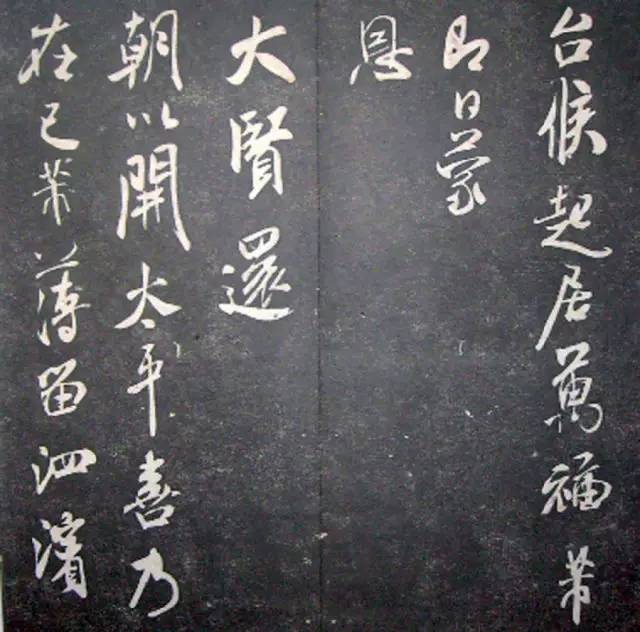 台候起居萬福芾
即日蒙
恩
大賢還
朝以開太平喜乃
在己芾薄留泗濱